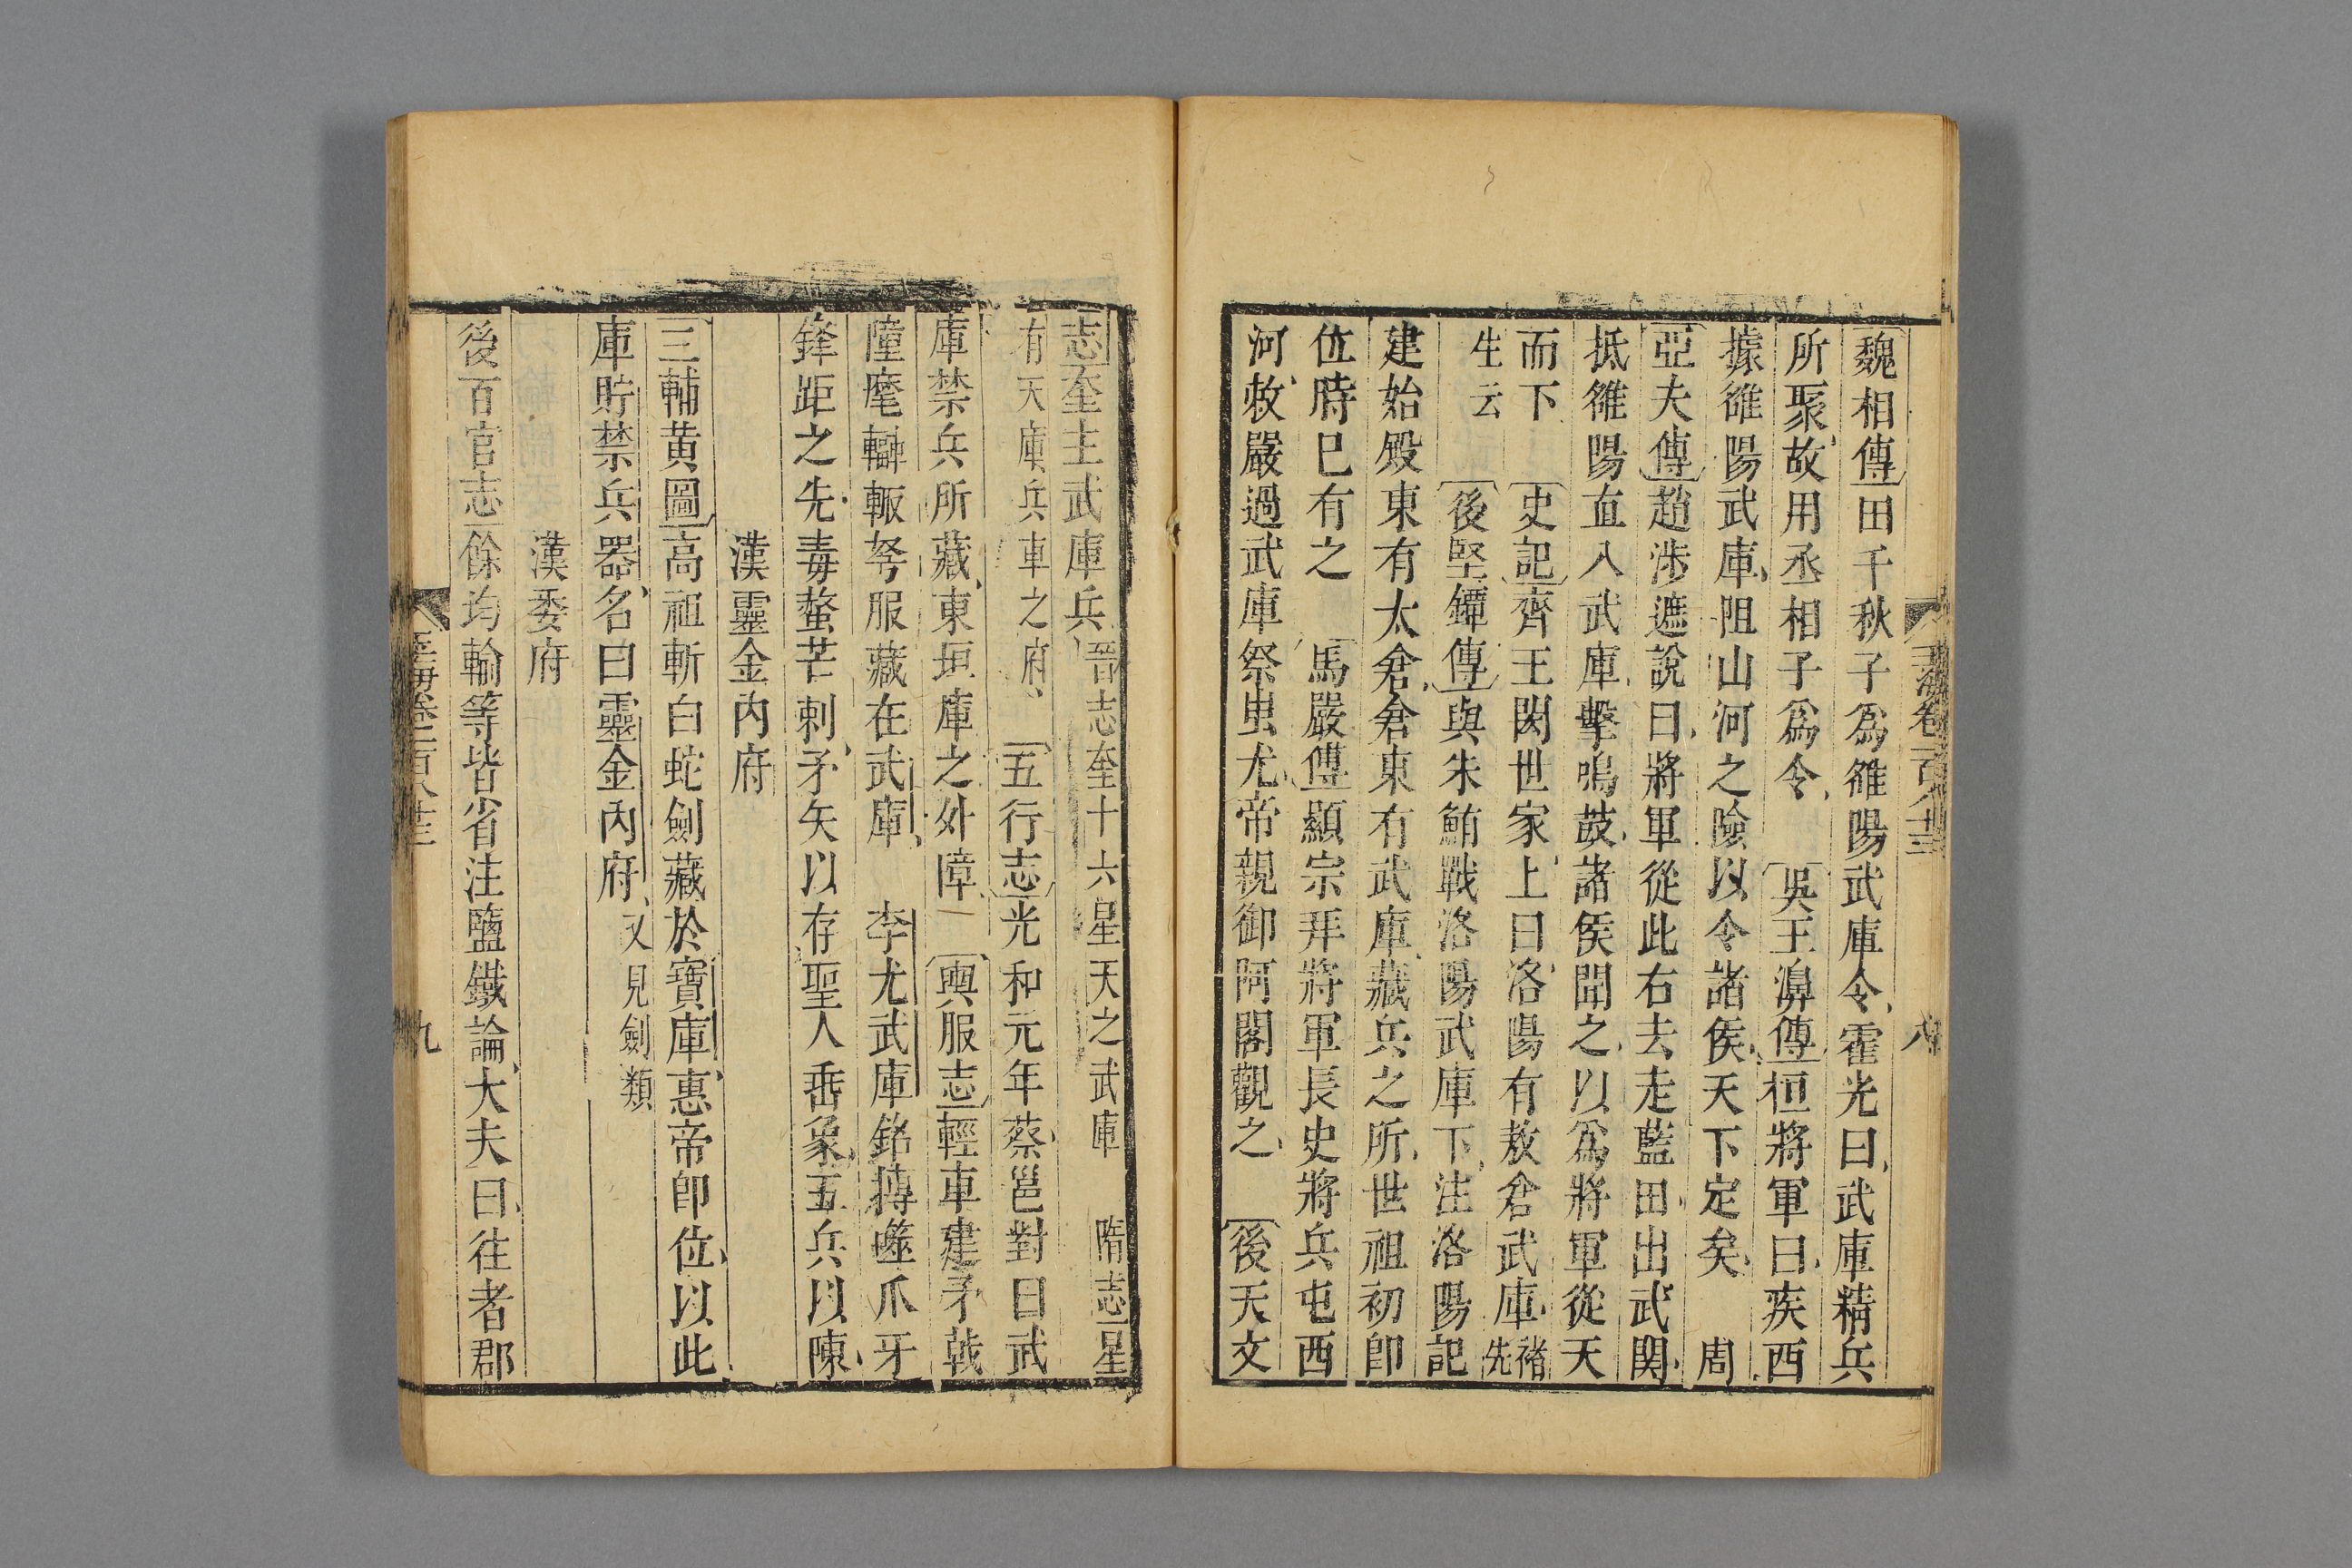 魏相傳田千秋子爲雒陽武庫令霍光曰武庫精兵
所聚故用丞相子爲令　吳王濞傳桓將軍曰疾西
據雒陽武庫阻山河之險以令諸侯天下定矣　周
亞夫傳趙涉遮說曰將軍從此右去走藍田出武関
抵雒陽直入武庫擊鳴鼓諸侯聞之以爲將軍從天
而下　史記齊王閎世家上曰洛陽有敖倉武庫褚先
生云　後堅鐔傳與朱鮪戰洛陽武庫下注洛陽記
建始殿東有太倉倉東有武庫藏兵之所世祖初卽
位時巳有之　馬嚴傳顯宗拜將軍長史將兵屯西
河敕嚴過武庫祭蚩尤帝親御阿閣觀之　後天文
玉海卷一百八十三　八
志奎主武庫兵晉志奎十六星天之武庫　隋志星
有天庫兵車之府　五行志光和元年蔡邕對曰武
庫禁兵所藏東垣庫之外障　輿服志輕車建矛戟
幢麾轓輒弩服藏在武庫　李尤武庫銘搏噬爪牙
鋒距之先毒螫芒刺矛矢以存聖人垂象五兵以陳
漢靈金内府
三輔黄圖高祖斬白蛇劍藏於寶庫惠帝卽位以此
庫貯禁兵器名曰靈金內府又見劍類
漢委府
後百官志餘均輸等皆省注鹽鐵論大夫曰往者郡
玉海卷一百八十三　九